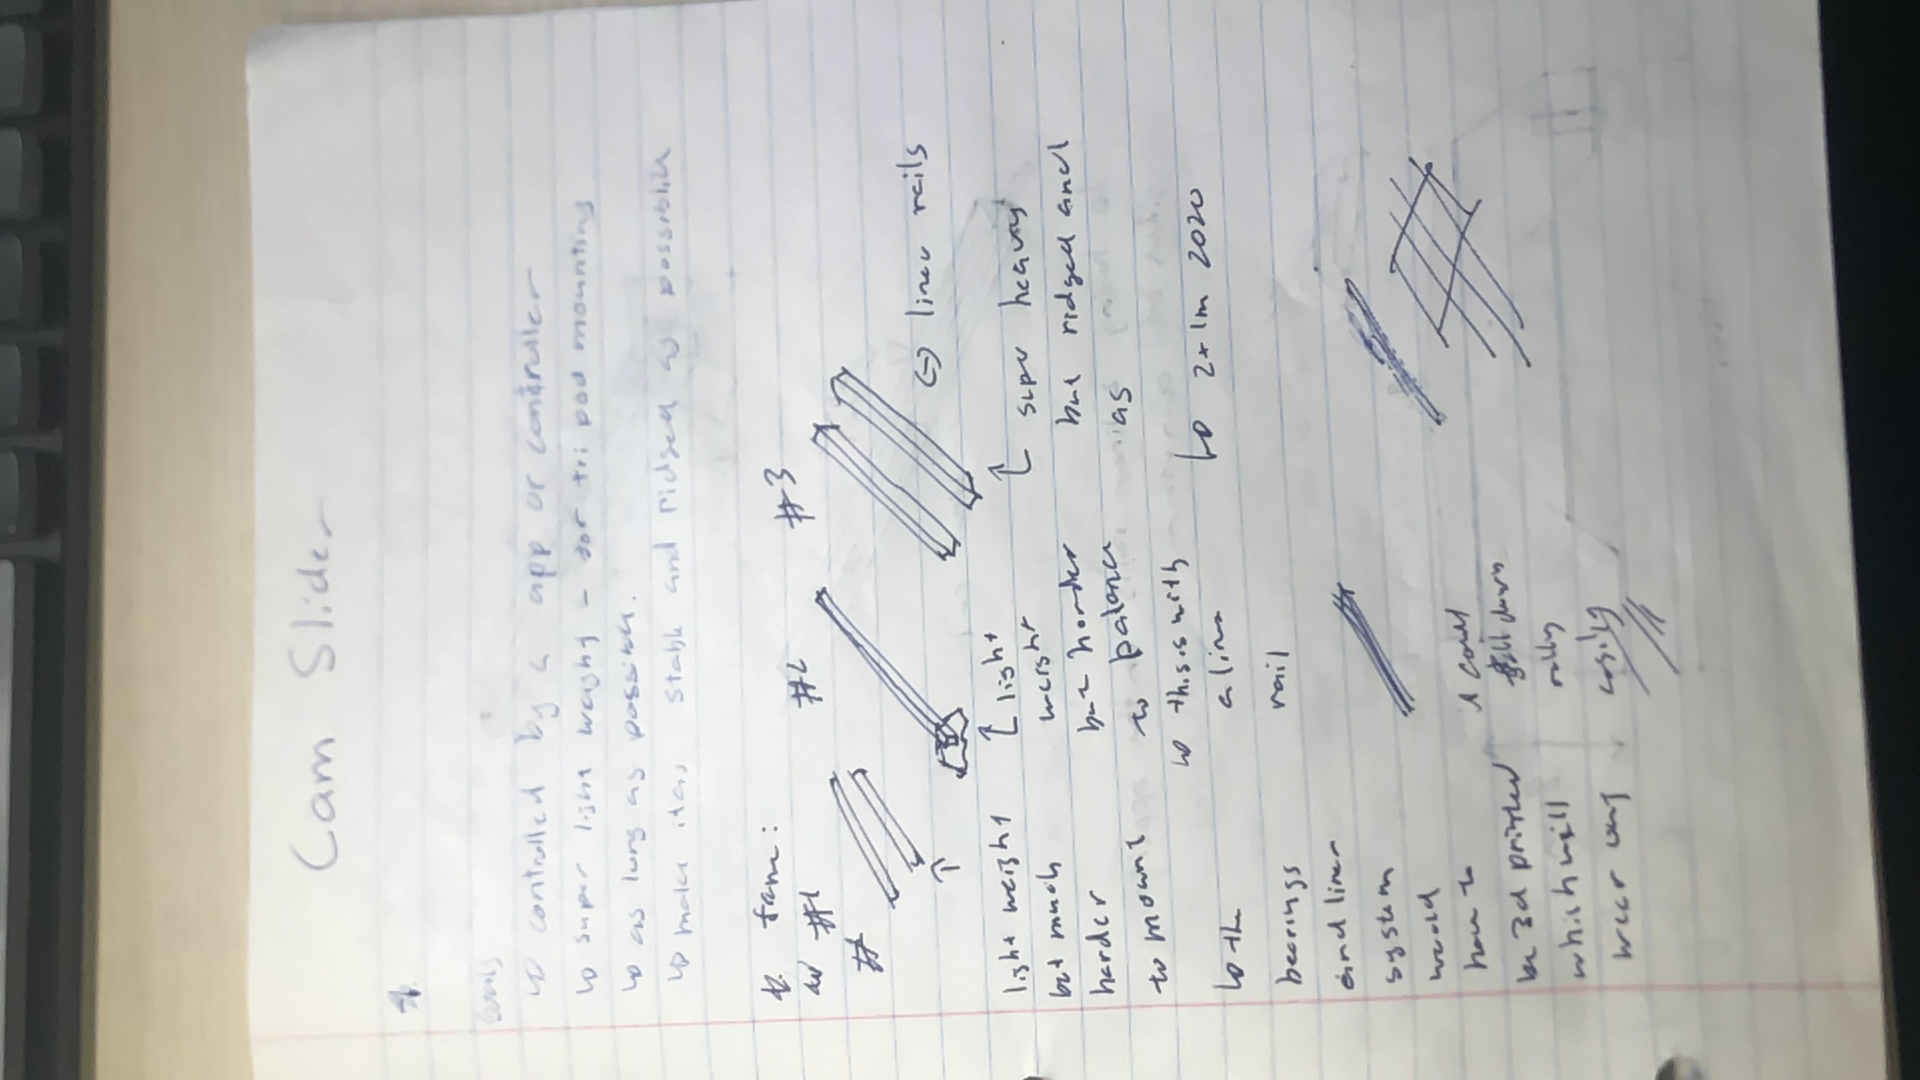 Cam Slider
Goals
controlled by a app or controller
super light weight - for tripod mounting
as long as possible.
make it as stable and ridged as possible
frame:
#1
#2
#3
linear rails
light weight
but much
harder
to mount
the
bearings
and linear
system
would
have to
be 3d printed
which will
wear out
light
weight
but harder
to balance
this is with
a linear
rail
it could
fall down
really
easily
super heavy
but ridged and
as
2x 1m 2020